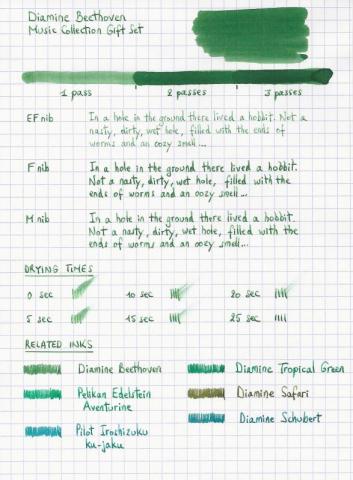 Diamine Beethoven
Music Collection Gift Set
1 pass 2 passes 3 passes
EF nib In a hole in the ground there lived a hobbit. Not a
nasty, dirty, wet hole, filled with the ends of
worms and an oozy smell...
F nib In a hole in the ground there lived a hobbit.
Not a nasty, dirty, wet hole, filled with the
ends of worms and an oozy smell...
M nib In a hole in the ground there lived a hobbit.
Not a nasty, dirty, wet hole, filled with the
ends of worms and an oozy smell...
DRYING TIMES
0 sec 10 sec 20 sec
5 sec 15 sec 25 sec
RELATED INKS
Diamine Beethoven Diamine Tropical Green
Pelikan Edelstein Diamine Safari
Aventurine
Diamine Schubert
Pilot Iroshizuku
ku-jaku